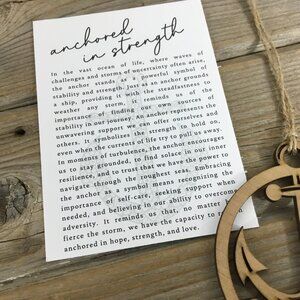 anchored
in strength
In the vast ocean of life, where waves of
challenges and storms of uncertainty often arise,
the anchor stands as a powerful symbol of
stability and strength. Just as an anchor grounds
a ship, providing it with the steadfastness to
weather any storm, it reminds us of the
importance of finding our own sources of
stability in our journey. An anchor represents the
unwavering support we can offer ourselves and
others. It symbolizes the strength to hold on,
even when the currents of life try to pull us away.
In moments of turbulence, the anchor encourages
us to stay grounded, to find solace in our inner
resilience, and to trust that we have the power to
navigate through the roughest seas. Embracing
the anchor as a symbol means recognizing the
importance of self-care, seeking support when
needed, and believing in our ability to overcome
adversity. It reminds us that, no matter
fierce the storm, we have the capacity to
anchored in hope, strength, and love.